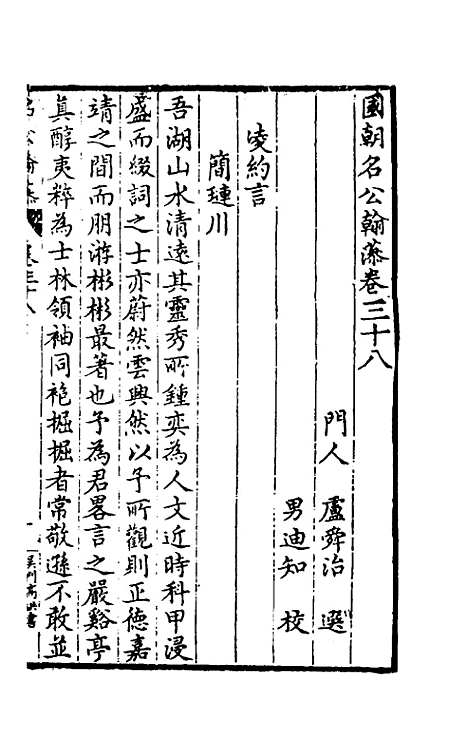 國朝名公翰藻卷三十八
門人 盧舜治 選
男迪知 校
凌約言
簡璉川
吾湖山水清遠其靈秀所鍾奕為人文近時科甲浸
盛而綴詞之士亦蔚然雲興然以予所觀則正德嘉
靖之間而朋游彬彬最著也予為君畧言之嚴谿亭
真醇夷粹為士林領袖同袍掘掘者常敬遜不敢並